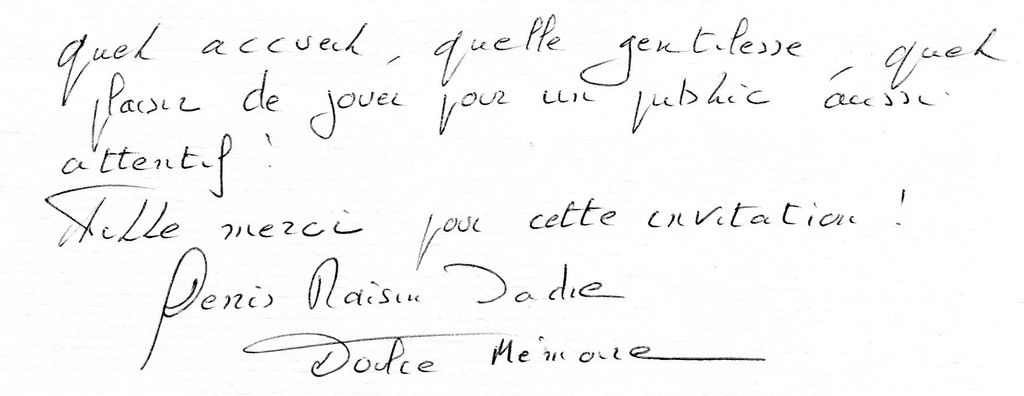 quel accueil, quelle gentilesse, quel
plaisir de jouer pour un public aussi
attentif !
Mille merci pour cette invitation !
Denis Raisin Dadre
Doulce Mémoire